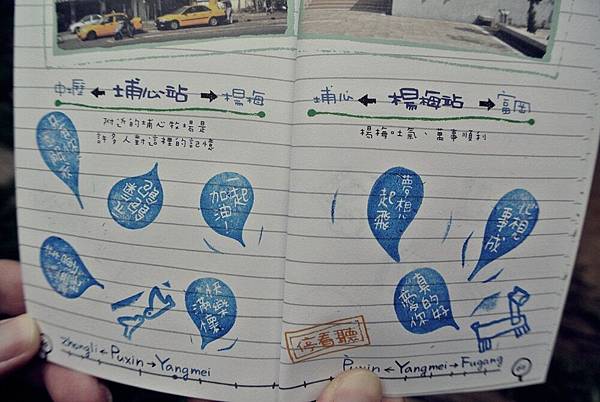 中壢 ← 埔心站 → 楊梅
附近的埔心牧場是
許多人對這裡的記憶
一起
加油!
快樂
滿懷
Zhongli ← Puxin → Yangmei
埔心 ← 楊梅站 → 富岡
楊梅吐氣、萬事順利
夢想
起飛
心想
事成
真的好
愛你
停看聽
Puxin ← Yangmei → Fugang